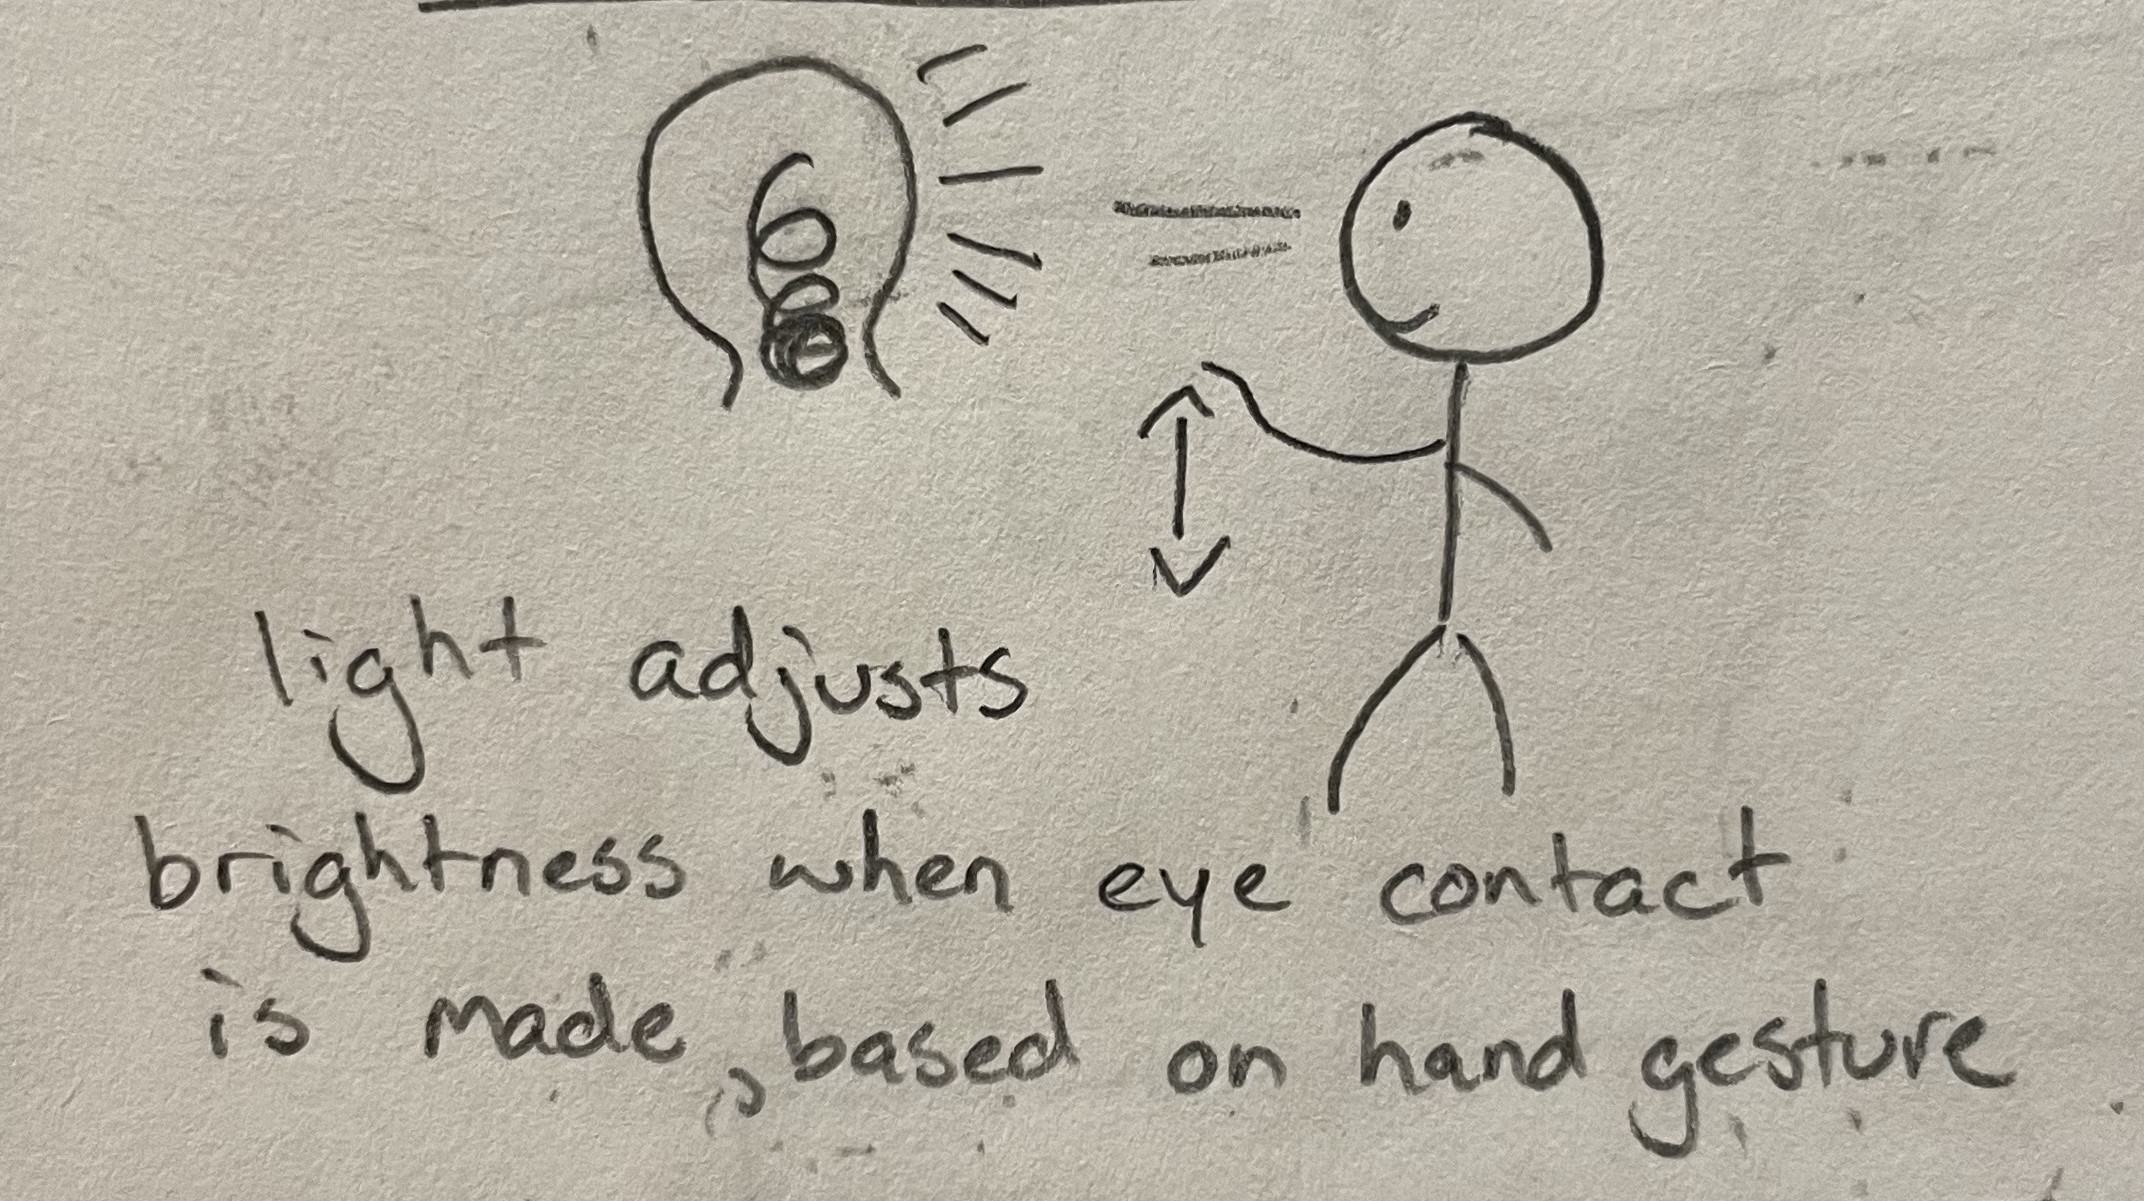 light adjusts
brightness when eye contact
is made, based on hand gesture